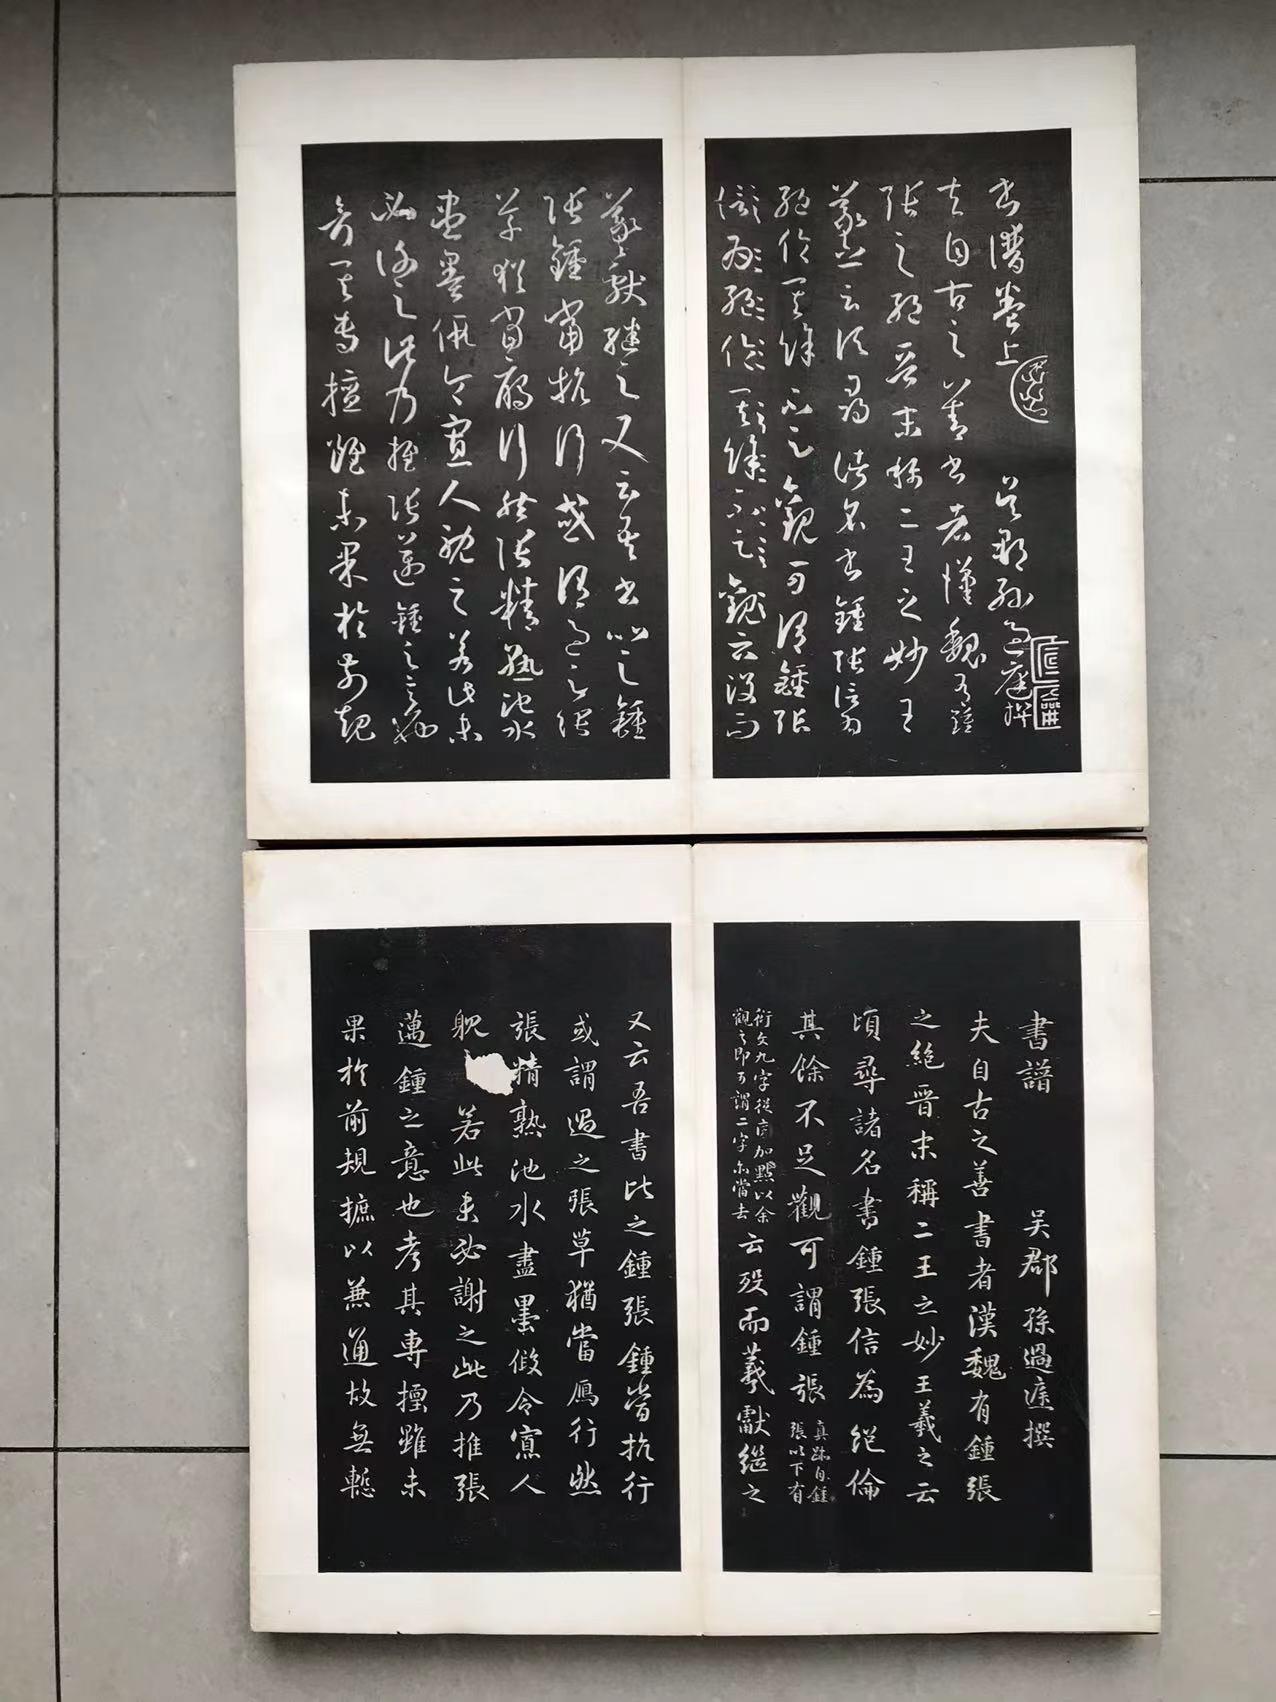 書譜卷上 吳郡孫過庭撰
夫自古之善書者漢魏有鍾
張之絕晉末稱二王之妙王
羲之云頃尋諸名書鍾張信為
絕倫其餘不足觀可謂鍾張
信為絕倫其餘不足觀云沒而
羲獻繼之又云吾書比之鍾
張鍾當抗行或謂過之張
草猶當鴈行然張精熟池水
盡墨假令寡人耽之若此未
必謝之此乃推張邁鍾之意也
考其專擅雖未果於前規
書譜 吳郡孫過庭撰
夫自古之善書者漢魏有鍾張
之絕晉末稱二王之妙王羲之云
頃尋諸名書鍾張信為絕倫
其餘不足觀可謂鍾張真跡自鍾張以下有
衍文九字從旁加點以余觀之即可謂二字亦當去云歿而羲獻繼之
又云吾書比之鍾張鍾當抗行
或謂過之張草猶當鴈行然
張精熟池水盡墨假令寡人
耽若此未必謝之此乃推張
邁鍾之意也考其專擅雖未
果於前規摭以兼通故無慙